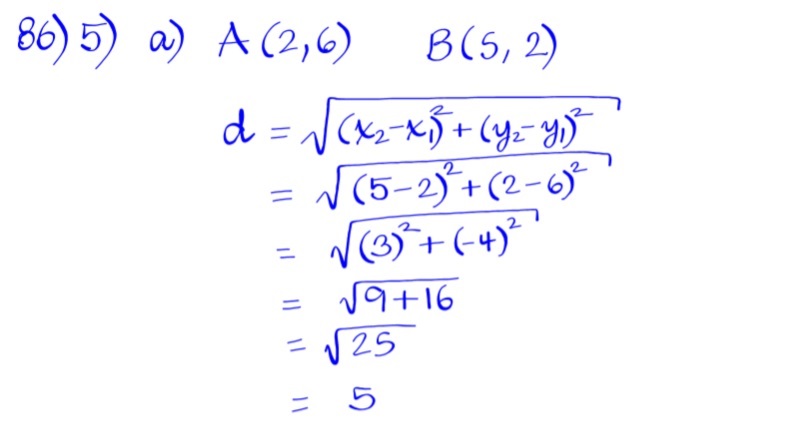 86) 5) a) A (2,6) B (5, 2)
d = √((x₂-x₁)² + (y₂-y₁)²)
= √((5-2)² + (2-6)²)
= √((3)² + (-4)²)
= √(9+16)
= √25
= 5